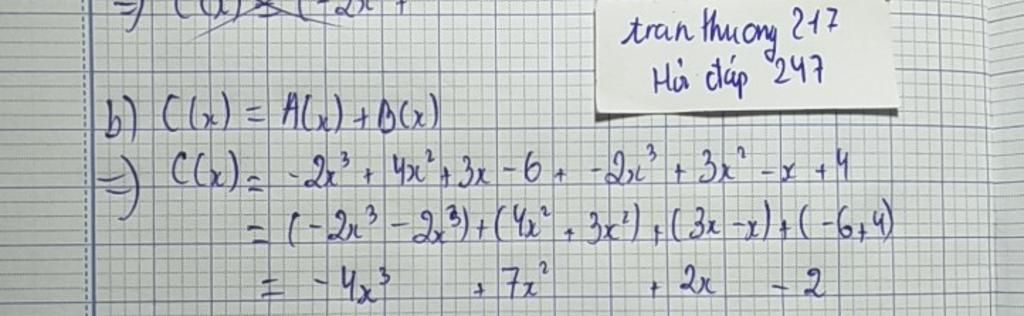 =) C(x) = (-2x³ +
tranthuong 217
Hỏi đáp 247
b) C(x) = A(x) + B(x)
=) C(x) = -2x³ + 4x² + 3x - 6 + -2x³ + 3x² - x + 4
= (-2x³ - 2x³) + (4x² + 3x²) + (3x - x) + (-6 + 4)
= -4x³ + 7x² + 2x - 2